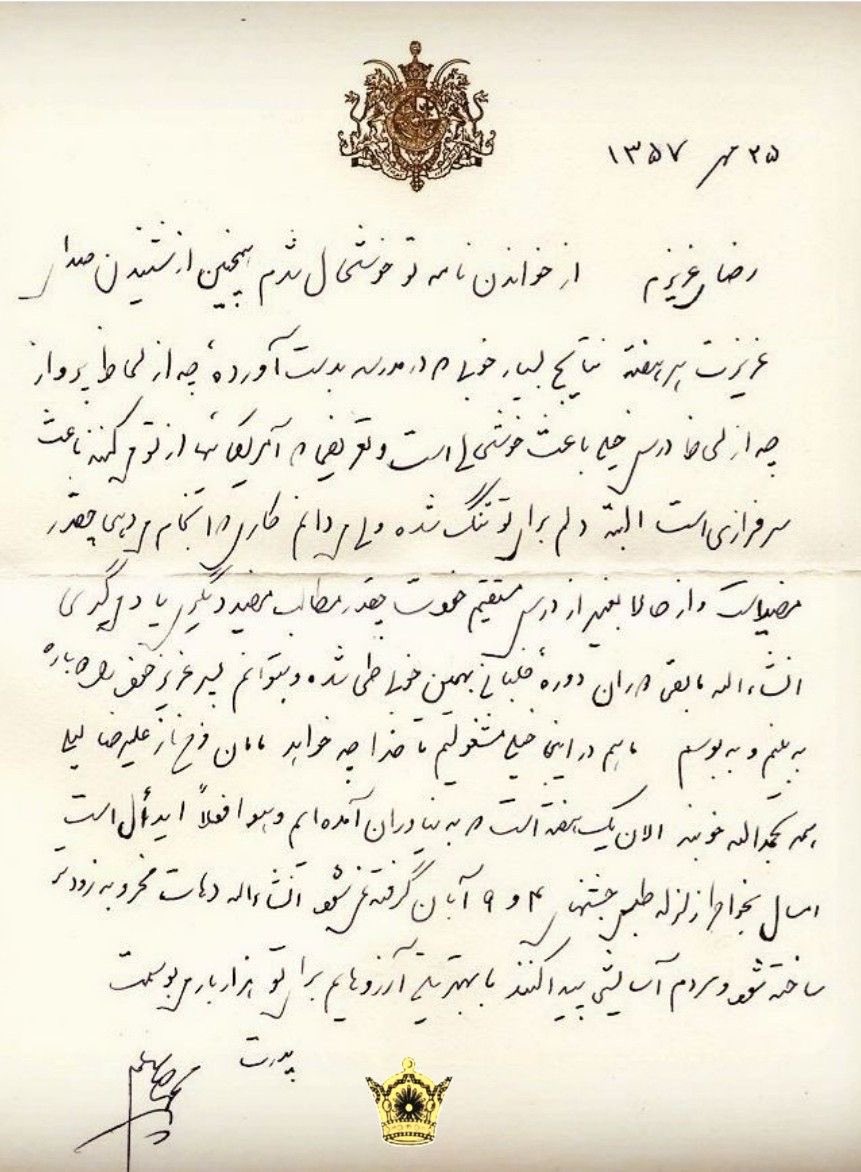 ۲۵ مهر ۱۳۵۷
رضای عزیزم از خواندن نامه تو خوشحال شدم همچنین از شنیدن صدای
عزیزت هر هفته نتایج بسیار خوبی که در مدرسه بدست آورده‌ای چه از لحاظ پرواز
چه از لحاظ درس خیلی باعث خوشحالی است و تعریفی که آمریکائی‌ها از تو می‌کنند باعث
سرفرازی است البته دلم برای تو تنگ شده ولی می‌دانم کاری که انجام می‌دهی چقدر
مفید است و از حالا بغیر از درس مستقیم خودت چقدر مطالب مفید دیگری یاد می‌گیری
انشاءالله مابقی دوران دوره خلبانی بهمین خوبی طی شده و بتوانم پسر عزیز خودم را دوباره
به بینم و به بوسم ما هم در اینجا خیلی مشغولیم تا خدا چه خواهد مامان فرحناز علیرضا لیلی
همه بحمدالله خوبند الان یک هفته است که به نیاوران آمده‌ایم و هوا فعلاً ایدآل است
امسال بخاطر زلزله طبس جشنهای ۴ و ۹ آبان گرفته نمی‌شود انشاءالله دهات مخروبه زودتر
ساخته شود و مردم آسایشی پیدا کنند با بهترین آرزوهایم برای تو هزار بار می‌بوسمت
پدرت